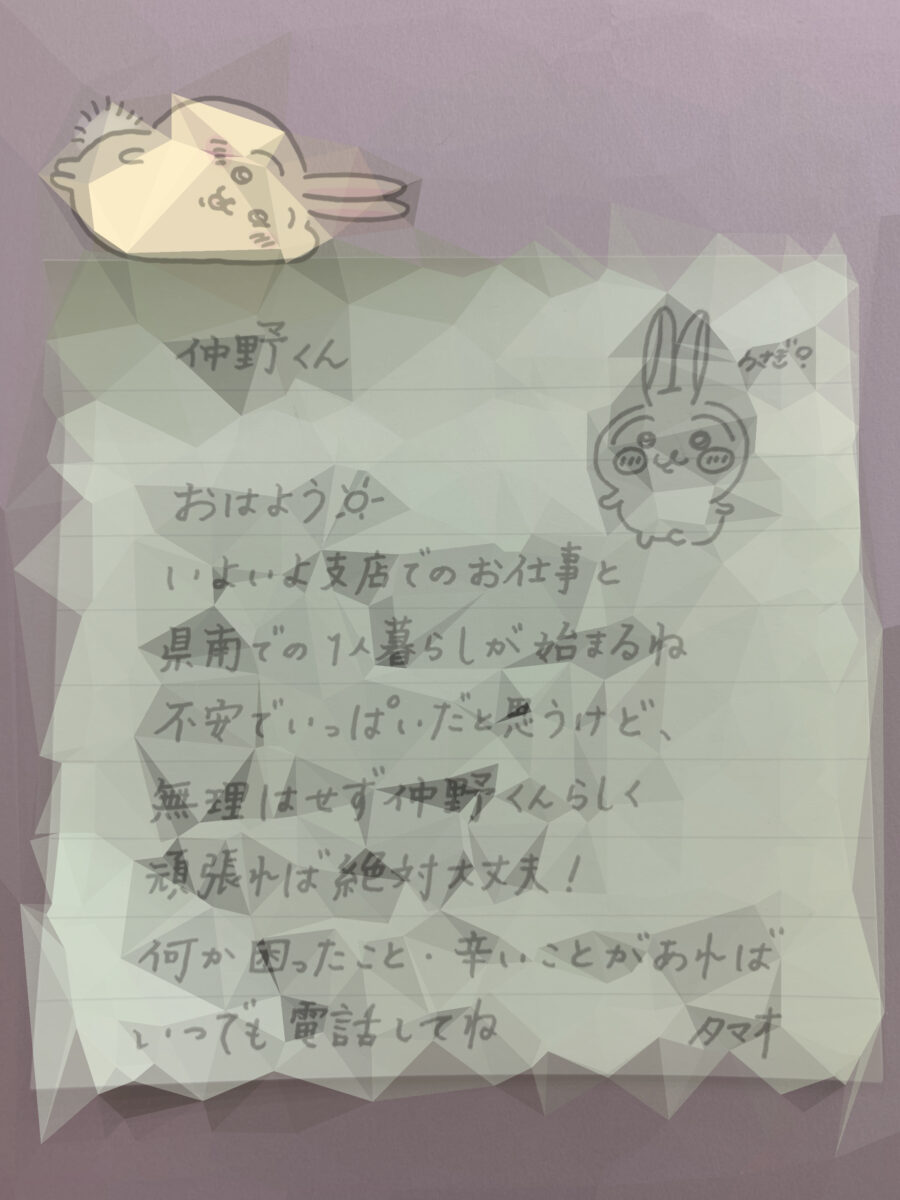 仲野くん
うさぎ?
おはよう
いよいよ支店でのお仕事と
県南での1人暮らしが始まるね
不安でいっぱいだと思うけど、
無理はせず仲野くんらしく
頑張れば絶対大丈夫!
何か困ったこと・辛いことがあれば
いつでも電話してね
タマオ